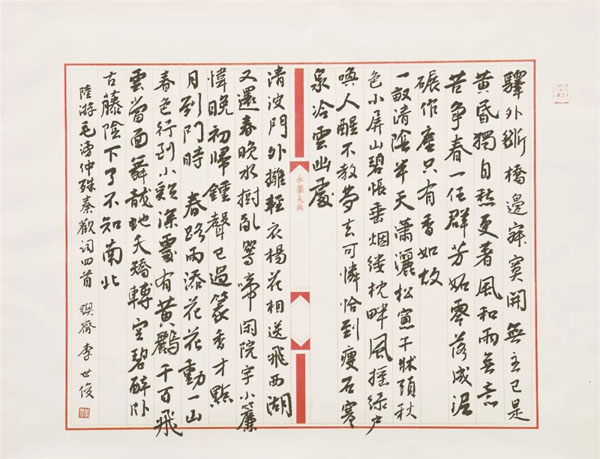 驛外斷橋邊寂寞開無主已是
黄昏獨自愁更著風和雨無意
苦争春一任群芳妒零落成泥
碾作塵只有香如故
一畝清陰半天蕭灑松窗午牀頭秋
色小屏山碧帳垂烟縷枕畔風摇緑户
唤人醒不教夢去可憐恰到瘦石寒
泉冷雲幽處
清波門外擁輕衣楊花相送飛西湖
又還春晚水樹亂鶯啼閑院宇小簾
幃晚初歸鍾聲已過篆香才點
月到門時 春路雨添花花動一山
春色行到小谿深處有黄鸝千百飛
雲當面舞龍蛇夭矯轉空碧醉卧
古藤陰下了不知南北
陸游毛滂仲殊秦觀詞四首 齋 李世俊